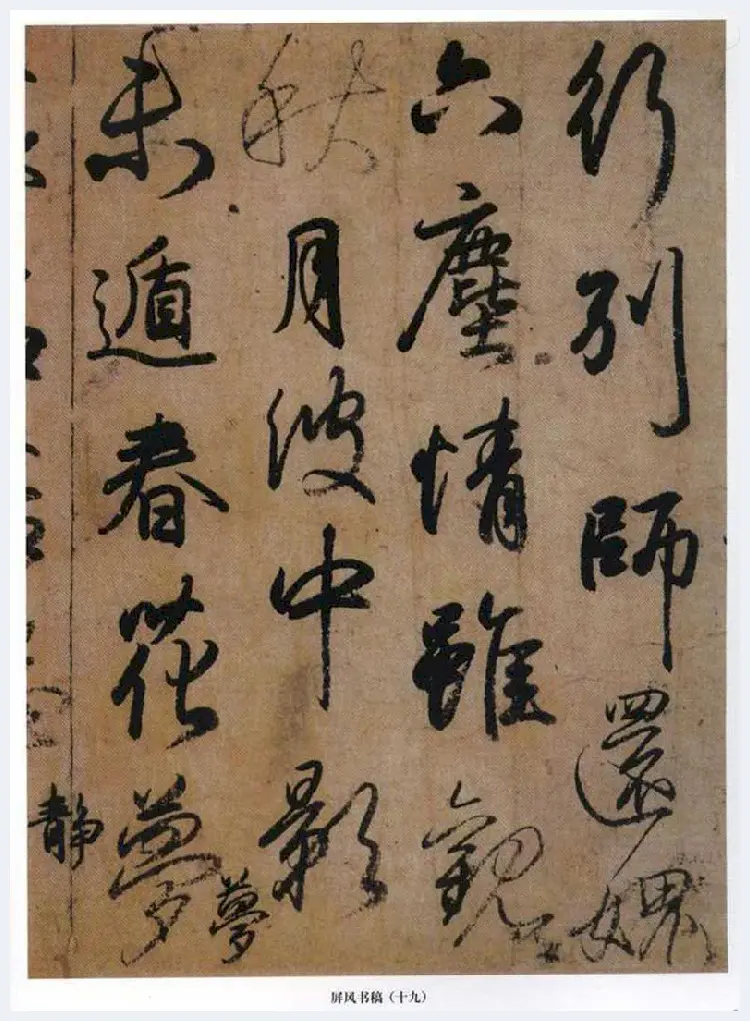 行別師還媿
六塵情雖觀
秋月波中影
未遁春花夢
夢
静
屏风书稿（十九）